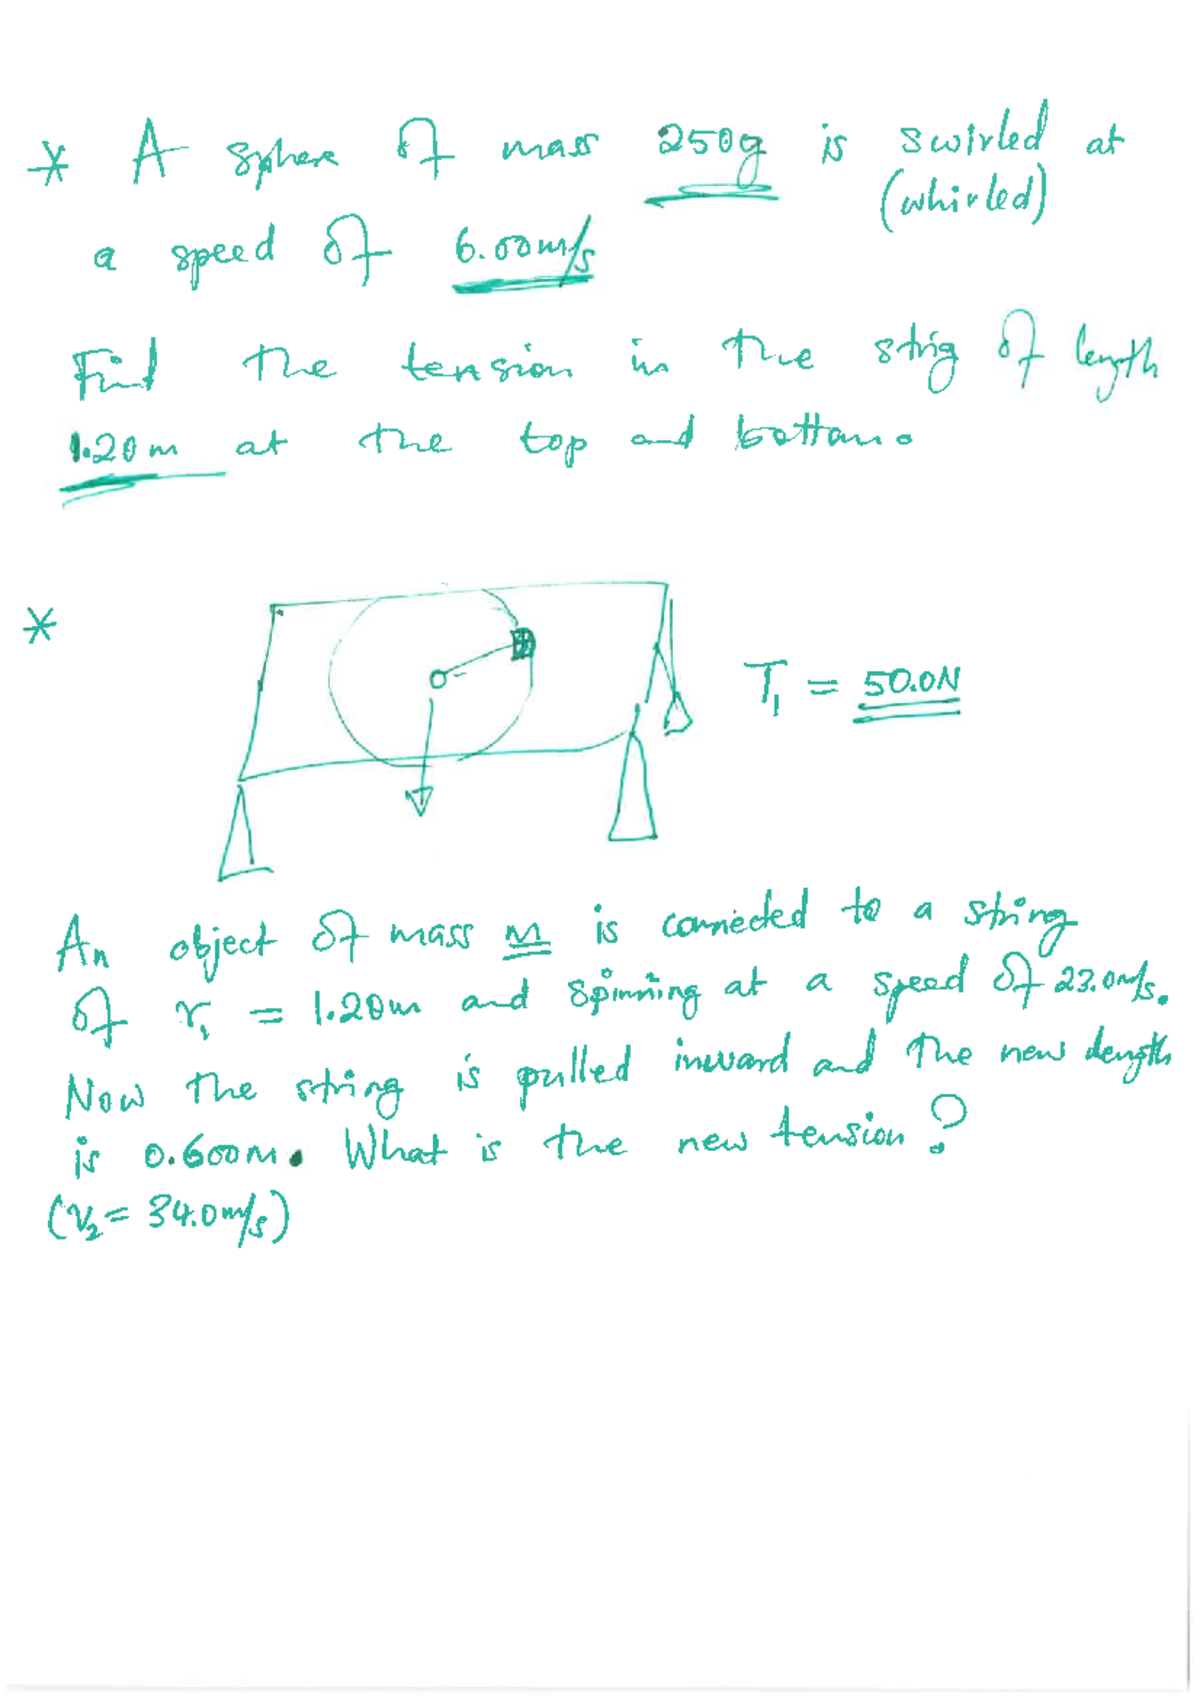 * A sphere of mass 250g is swirled at
(whirled)
a speed of 6.00m/s
Find the tension in the strig of length
1.20m at the top and bottom.
*
T₁ = 50.0N
An object of mass m is connected to a string
of r₁ = 1.20m and spinning at a speed of 23.0m/s.
Now the string is pulled inward and the new length
is 0.600m. What is the new tension?
(V₂ = 34.0m/s)